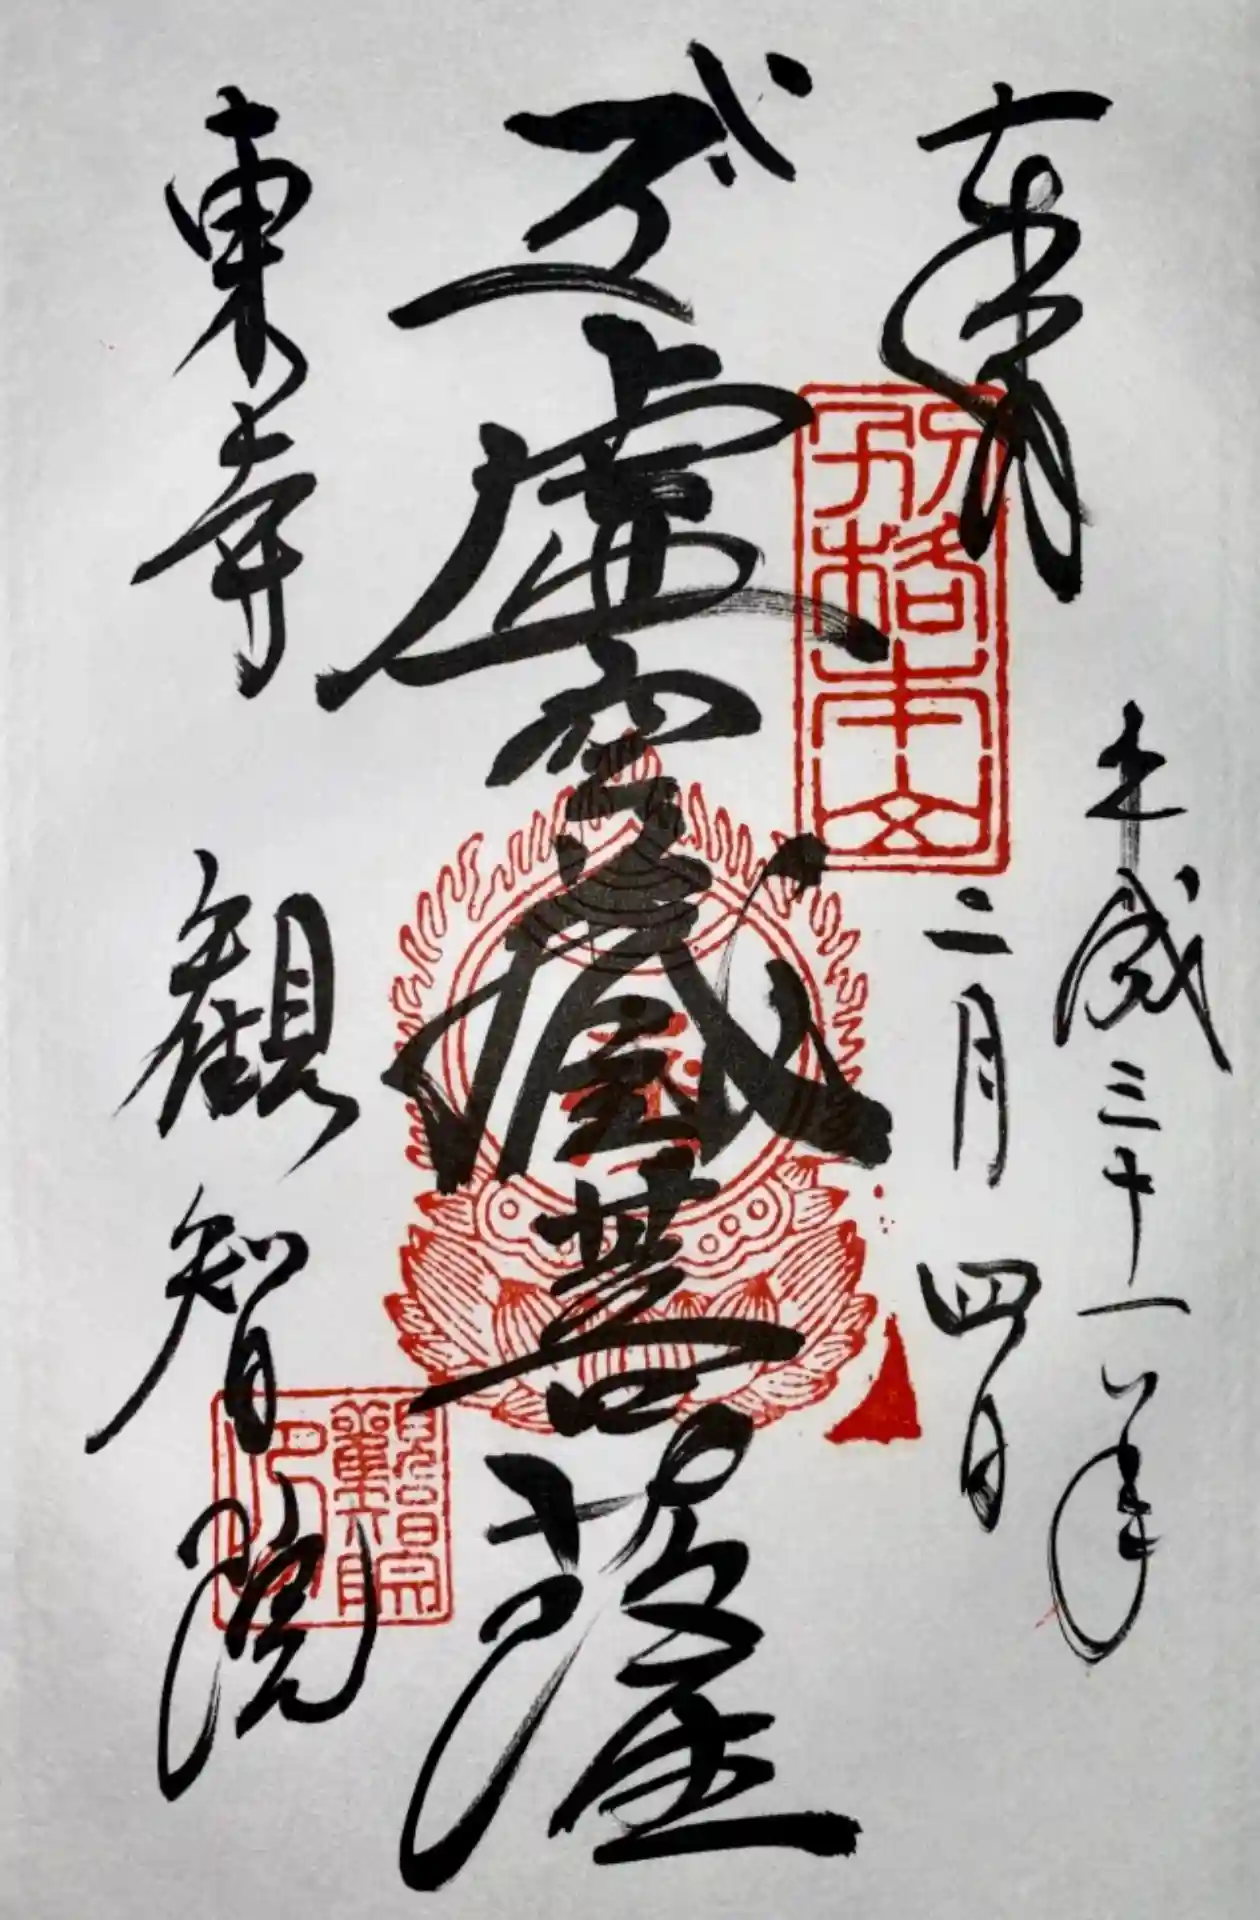 奉拝
平成三十一年
二月四日
五大虚空蔵菩薩
東寺
観智院
別格本山
観智院印